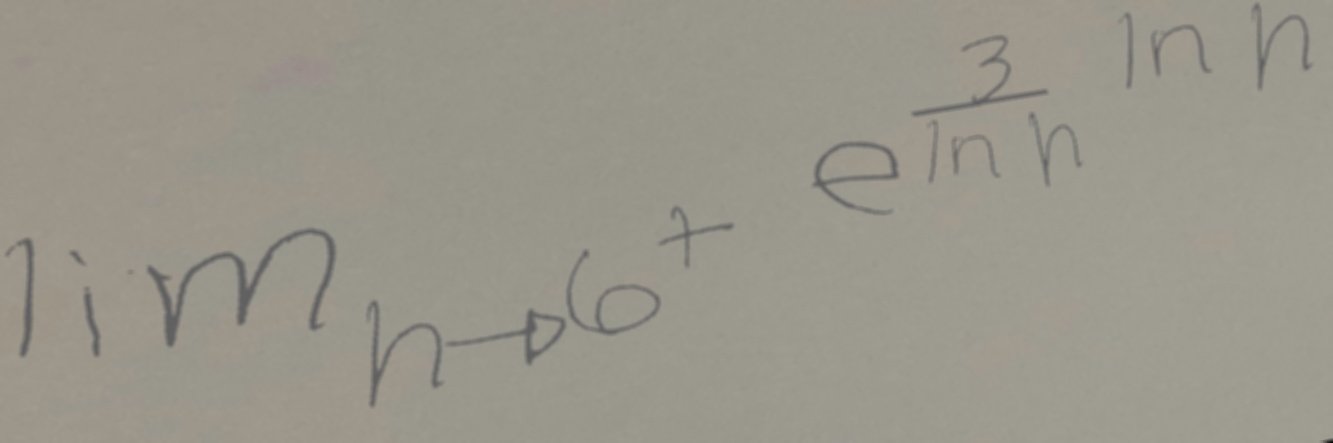 lim_{h→6^+} e^{\frac{3}{\ln h} \ln h}